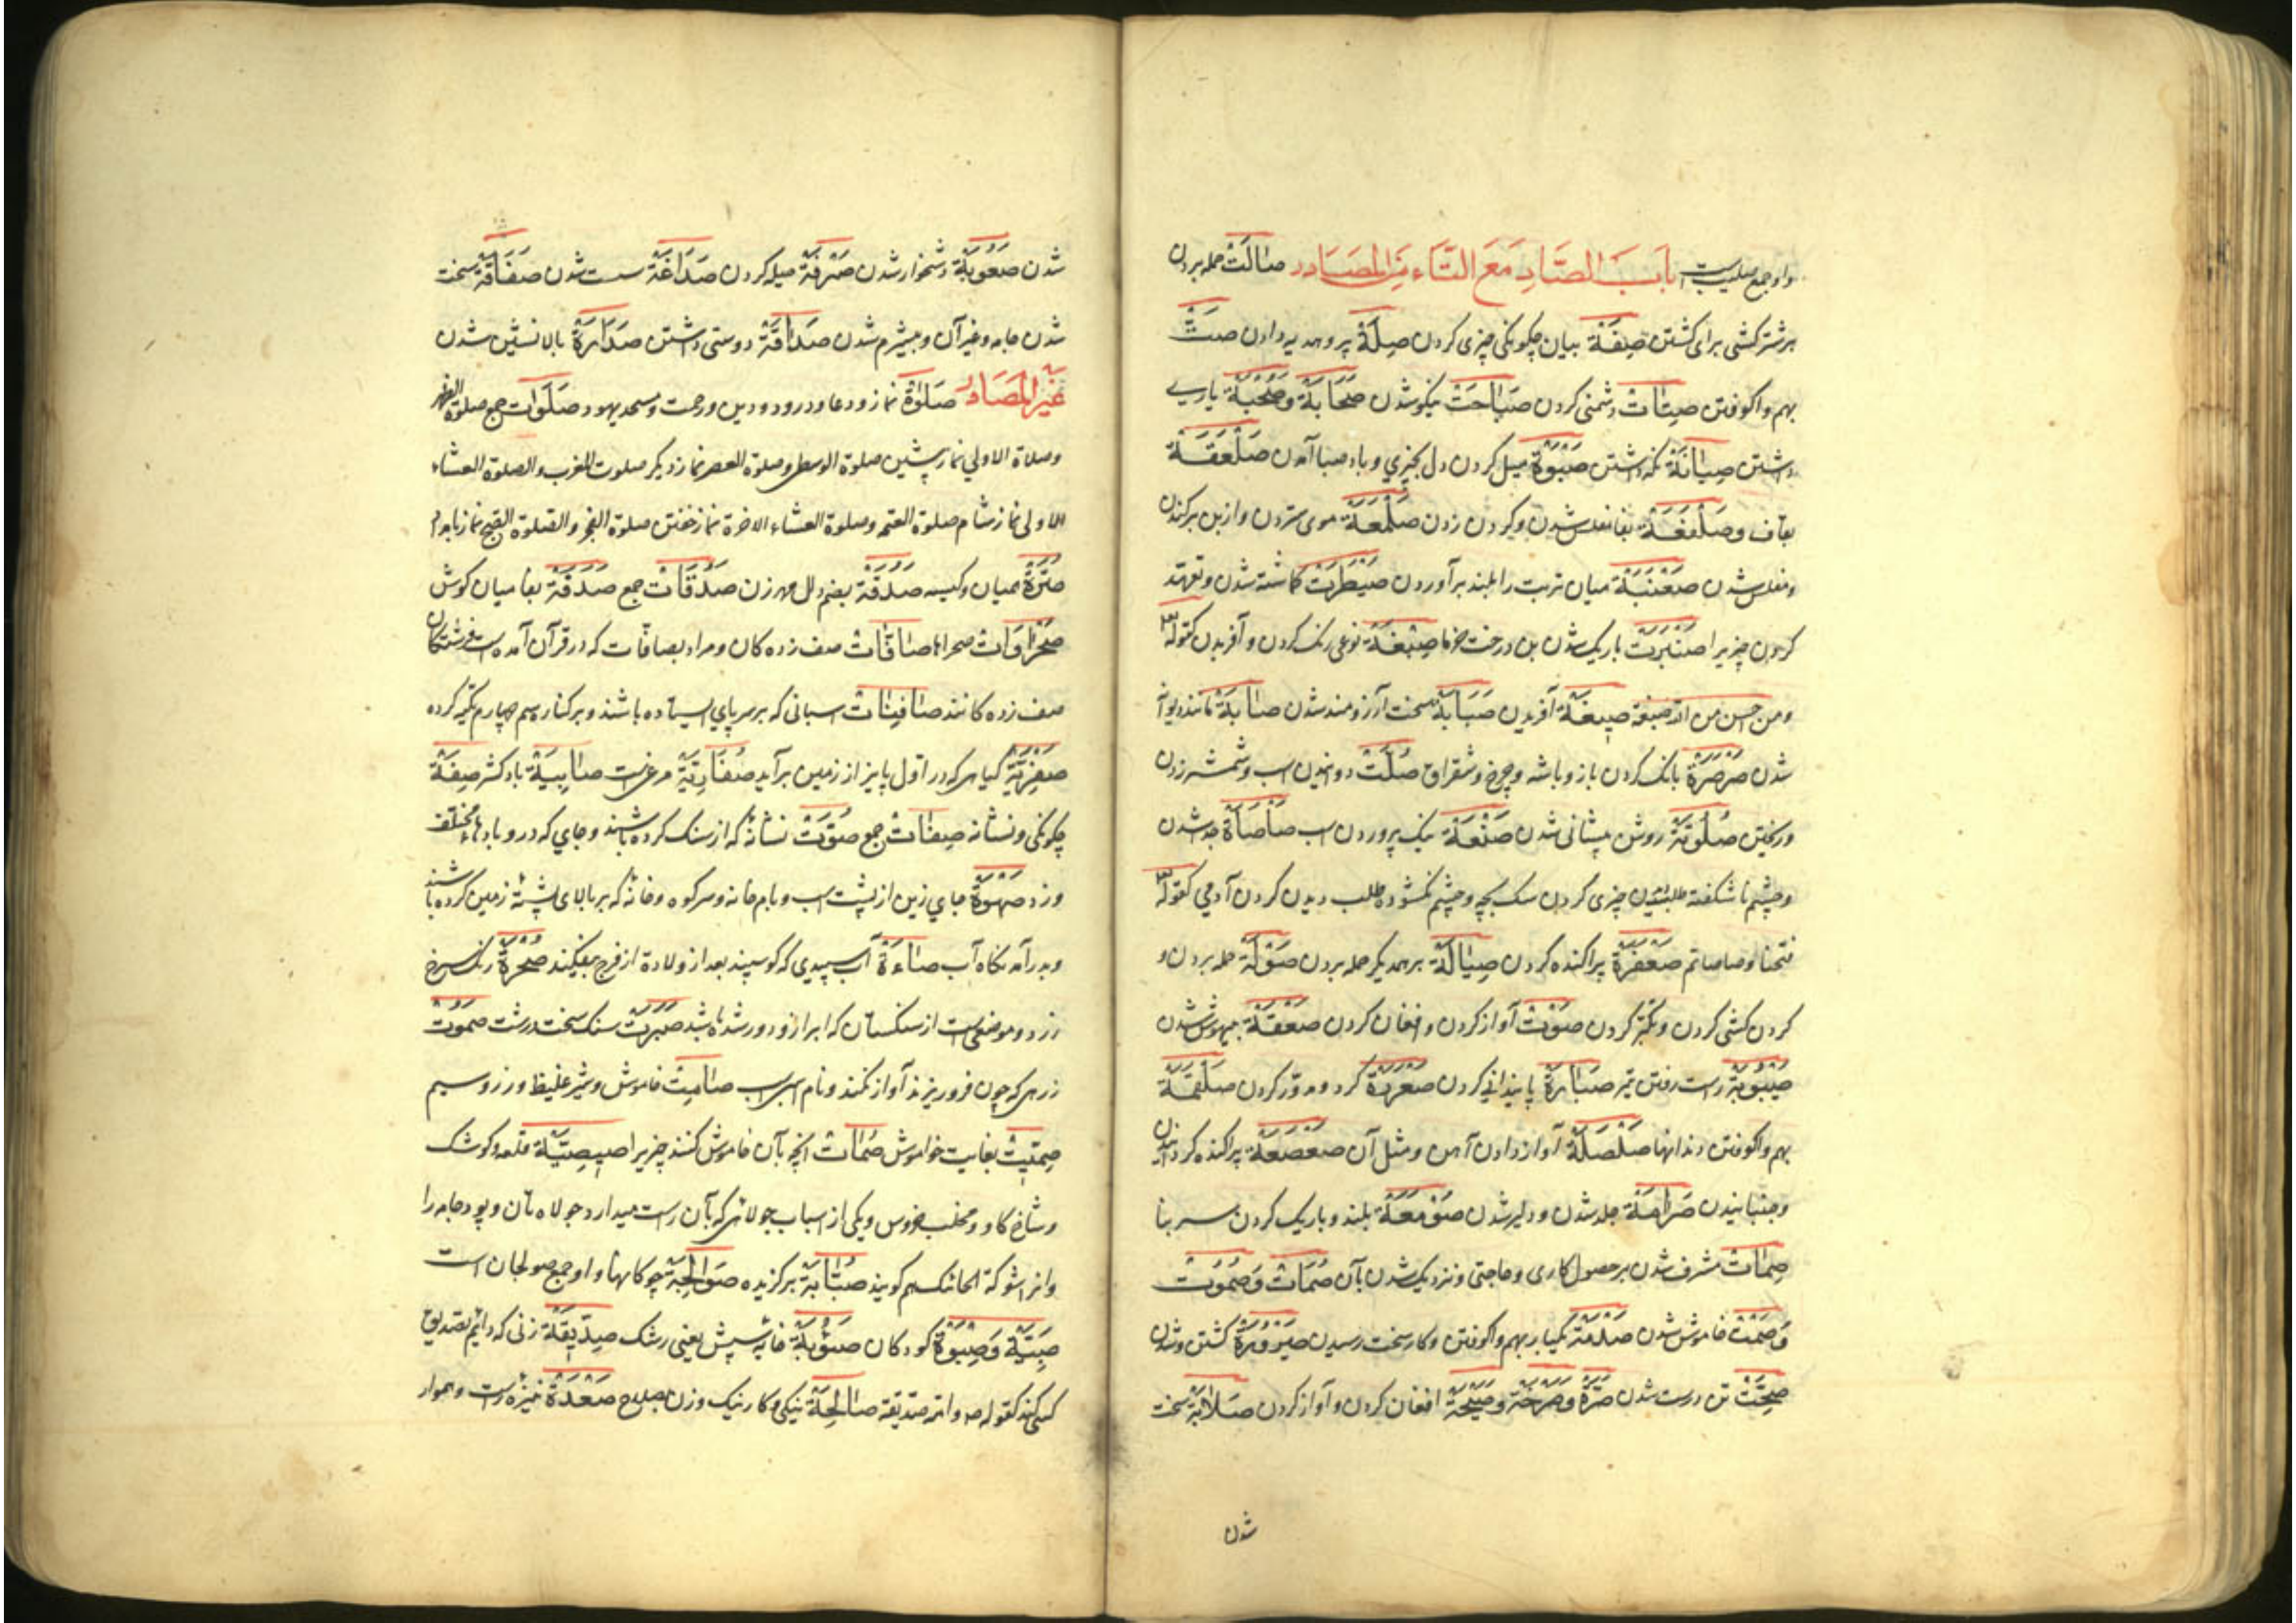 واو جمع صلیب است بَابُ الصَّادِ مَعَ التَّاءِ مِنَ المَصَادِر صَالَتْ حمله بردن
بر شتر کشی برای کشتن صِفَةْ بیان چکونکی چیزی کردن صِلَةْ پیوند و هدیه دادن صَتْ
بهم واکوفتن صِتَاتْ دشمنی کردن صَبَاحَتْ نیکو شدن صَحَابَةْ وَصُحْبَةْ یاری
داشتن صِیَانَةْ نکه داشتن صَبْوَةْ میل کردن دل بچیزی و باد صبا آمدن صَلْعَقَةْ
بقاف و صَلْفَعَةْ بفا مفلس شدن و کردن زدن صَلْمَعَةْ موی ستردن و از بن برکندن
و مفلس شدن صَعْنَبَةْ میان تربت را بلند برآوردن صَیْطَرَتْ کماشته شدن و تعهد
کردن چیزیرا صَنْبَرَتْ باریک شدن بن درخت خرما صِبْغَةْ نوعی رنک کردن و آفریدن کقوله
ومن احسن من الله صبغة صِیغَةْ آفریدن صَبَابَةْ سخت آرزومند شدن صَابَةْ مانند دیوانه
شدن صَرْصَرَةْ بانک کردن باز و باشه و چرغ و شقراق صَلْتْ دوانیدن اسب و شمشیر زدن
و ریختن صُلُوتَةْ روشن پیشانی شدن صَنْعَةْ نیک پروردن اسب صَأصَأةْ جدا شدن
و چشم ناشکفته طلب دیدن چیزی کردن سک بچه و چشم نکشوده طلب دیدن کردن آدمی کقوله
فتحنا وصاصاتم صَعْفَرَةْ پراکنده کردن صِیَالَةْ بر همدیکر حمله بردن صَوْلَةْ حمله بردن و
کردن کشی کردن و تکبر کردن صَوْتْ آواز کردن و افغان کردن صَعْقَةْ بیهوش شدن
صَیْبُوبَةْ راست رفتن تیر صَبَارَةْ پایندانی کردن صَعْرَرَةْ کرد و مدور کردن صَلْقَمَةْ
بهم واکوفتن دندانها صَلْصَلَةْ آواز دادن آهن و مثل آن صَعْصَعَةْ پراکنده کردانیدن
و جنبانیدن صَرَامَةْ جلد شدن و دلیر شدن صَوْمَعَةْ بلند و باریک کردن سر بنا
صِمَاتْ مشرف شدن بر حصول کاری و حاجتی و نزدیک شدن بآن صُمَاتْ وَصُمُوتْ
وَصَمْتْ خاموش شدن صَدْمَةْ یکبار بهم واکوفتن و کار سخت رسیدن صَیْرُورَةْ کشتن و شدن
صِحَّتْ تن درست شدن صَرَّةْ وَصَرْخَةْ وَصَیْحَةْ افغان کردن و آواز کردن صَلَابَةْ سخت
شدن
شدن صُعُوبَةْ دشخوار شدن صَرْفَةْ میله کردن صَدَاغَةْ سست شدن صَفَاقَةْ سخت
شدن جامه و غیر آن و بیشرم شدن صَدَاقَةْ دوستی داشتن صَدَارَةْ بالا نشین شدن
غَیْرُ المَصَادِر صَلٰوةْ نماز و دعا و درود و دین و رحمت و مسجد یهود صَلَوَاتْ جمع صلوة الظهر
وصلاة الاولی نماز پیشین صلوة الوسطی وصلوة العصر نماز دیکر صلوت المغرب والصلوة العشاء
الاولی نماز شام صلوة العتمه وصلوة العشاء الاخرة نماز خفتن صلوة الفجر والصلوة الصبح نماز بامداد
صُرَّةْ همیان و کیسه صَدُقَةْ بضم دال مهر زن صَدُقَاتْ جمع صَدَفَةْ بفا میان کوش
صَحْرَاوَاتْ صحراها صَافَّاتْ صف زده کان و مراد بصافات که در قرآن آمده است فرشتکان
صف زده کانند صَافِنَاتْ اسبانی که بر سه پای ایستاده باشند و بر کنار سم چهارم تکیه کرده
صَفَرِیَّةْ کیاهی که در اول پاییز از زمین برآید صُفَارِیَّةْ مرغی است صَابِیَةْ باد کش صِفَةْ
چکونکی و نشانه صِفَاتْ جمع صُوَّتْ نشانه که از سنک کرده باشند و جای که در و بادهاء مختلف
وزد صَهْوَةْ جای زین از پشت اسب و بام خانه و سر کوه و خانه که بر بالای پشته زمین کرده باشند
و بدرآمدنکاه آب صَاءَةْ آب سپیدی که کوسپند بعد از ولادة از فرج بیفکند صُحْرَةْ رنک سرخ
زرد و موضعی است از سنکستان که ابر ازو دور شده باشد صَبُرَتْ سنک سخت درشت صَمُوتْ
زرهی که چون فرو ریزند آواز نکند و نام اسبی است صَامِتْ خاموش و شیر غلیظ و زر و سیم
صِمِّیتْ بغایت خواموش صُمَاتْ انچه بآن خاموش کنند چیزیرا صِیصِیَةْ قلعه و کوشک
و شاخ کاو و مخلب خروس و یکی از اسباب جولاهی که بآن راست میدارد جولاه تان و پود جامه را
صُیَّابَةْ برکزیده صَوَالِجَةْ چوکانها و او جمع صولجان است
صِبْیَةْ وَصِبْوَةْ کودکان صُؤَابَةْ خایه شپش یعنی رشک صِدِّیقَةْ زنی که دائم تصدیق
کسی کند کقوله وامه صدیقه صَالِحَةْ نیکی و کار نیک و زن بصلاح صَعْدَةْ نیزه راست و هموار